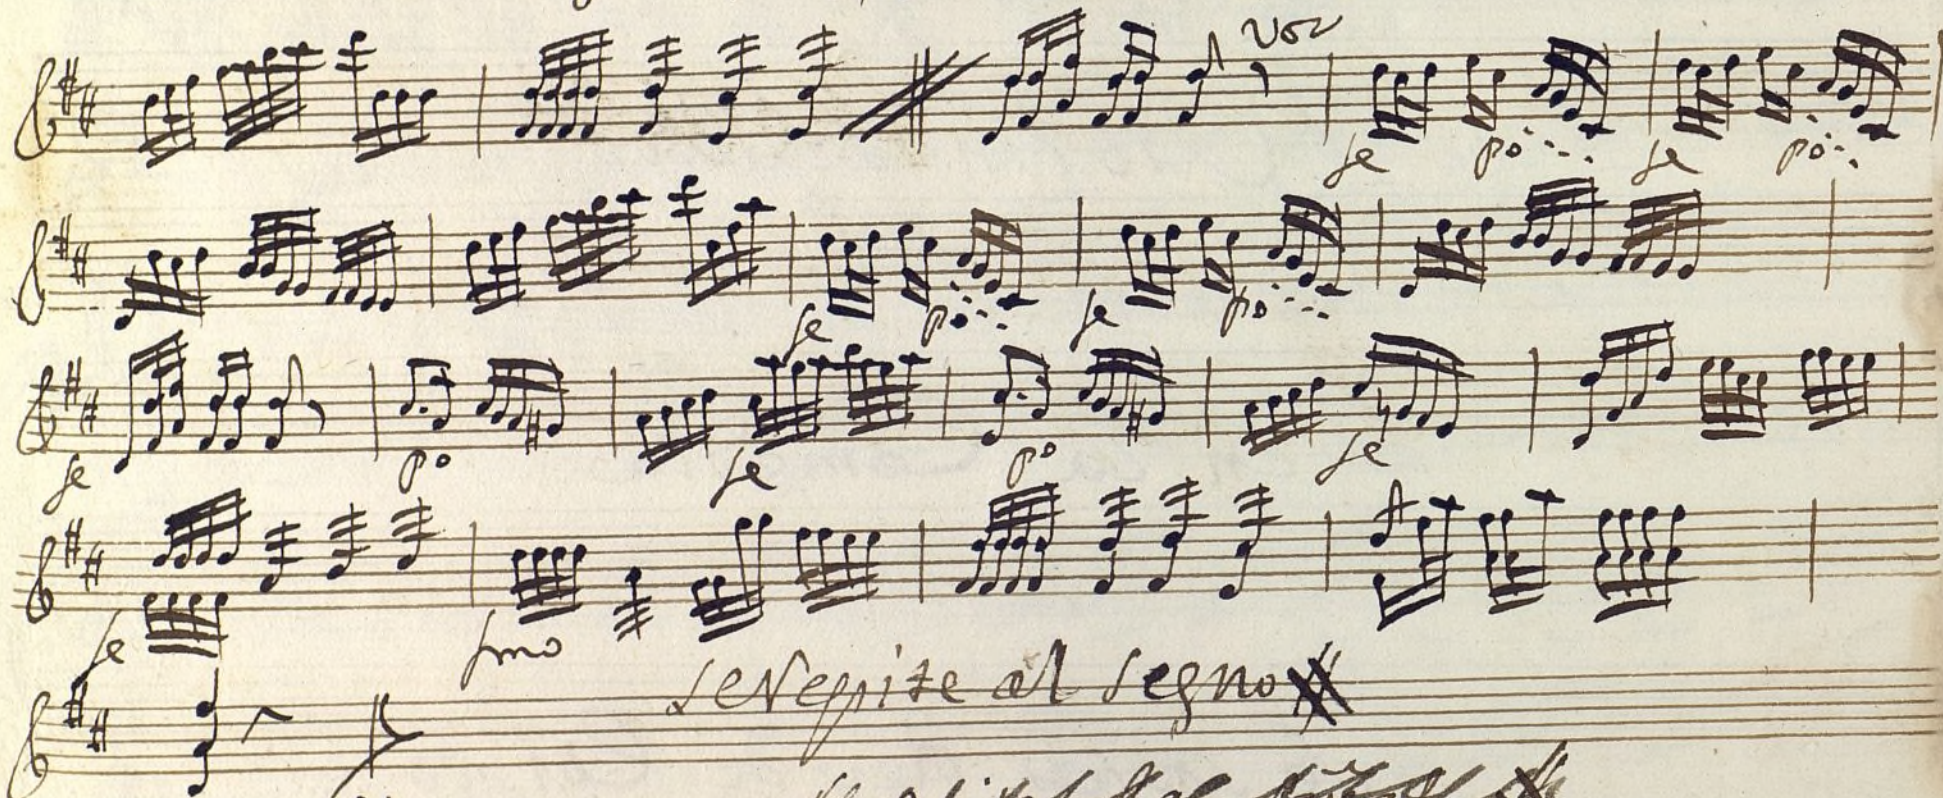 Voz
fe po fe po
fe po fe po
fe po fe po fe
fe fmo
se Reppite al segno